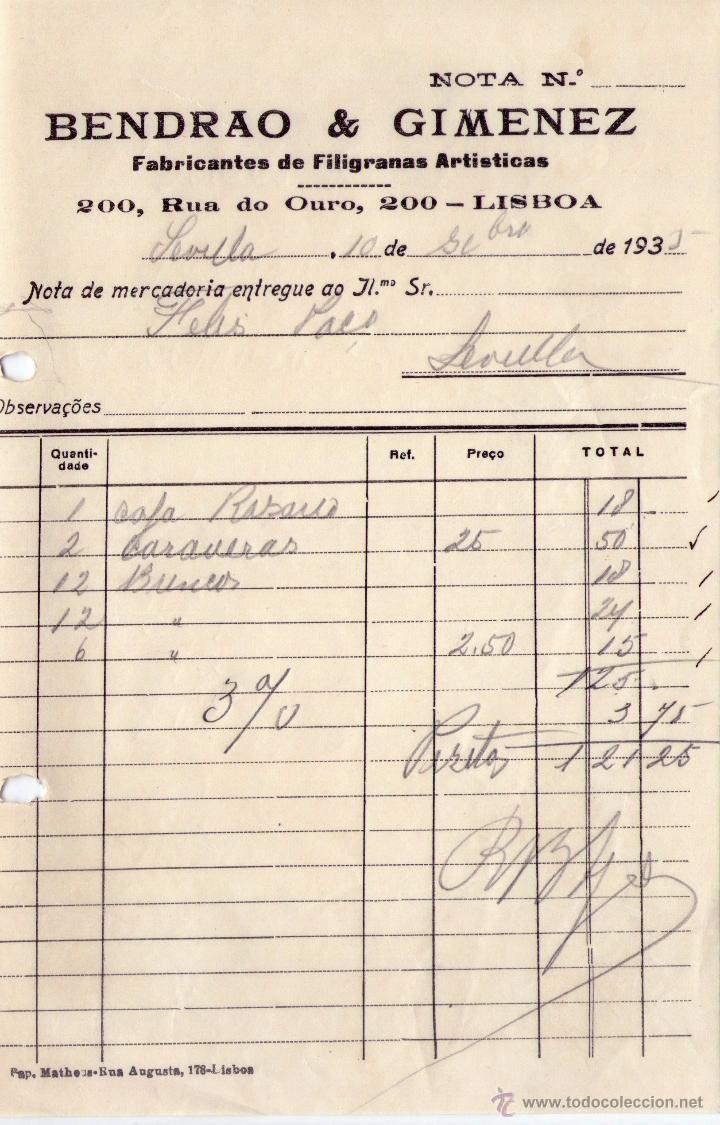 NOTA N.º
BENDRAO & GIMENEZ
Fabricantes de Filigranas Artisticas
200, Rua do Ouro, 200 – LISBOA
Sevilla, 10 de de 1935
Nota de mercadoria entregue ao Il.mo Sr.
Sevilla
Observações
Quanti-dade Ref. Preço TOTAL
1 18
2 25 50
12 18
12 " 24
6 " 2.50 15
125
3 % 3 75
Pesetas 121 25
Pap. Matheus-Rua Augusta, 178-Lisboa
www.todocoleccion.net